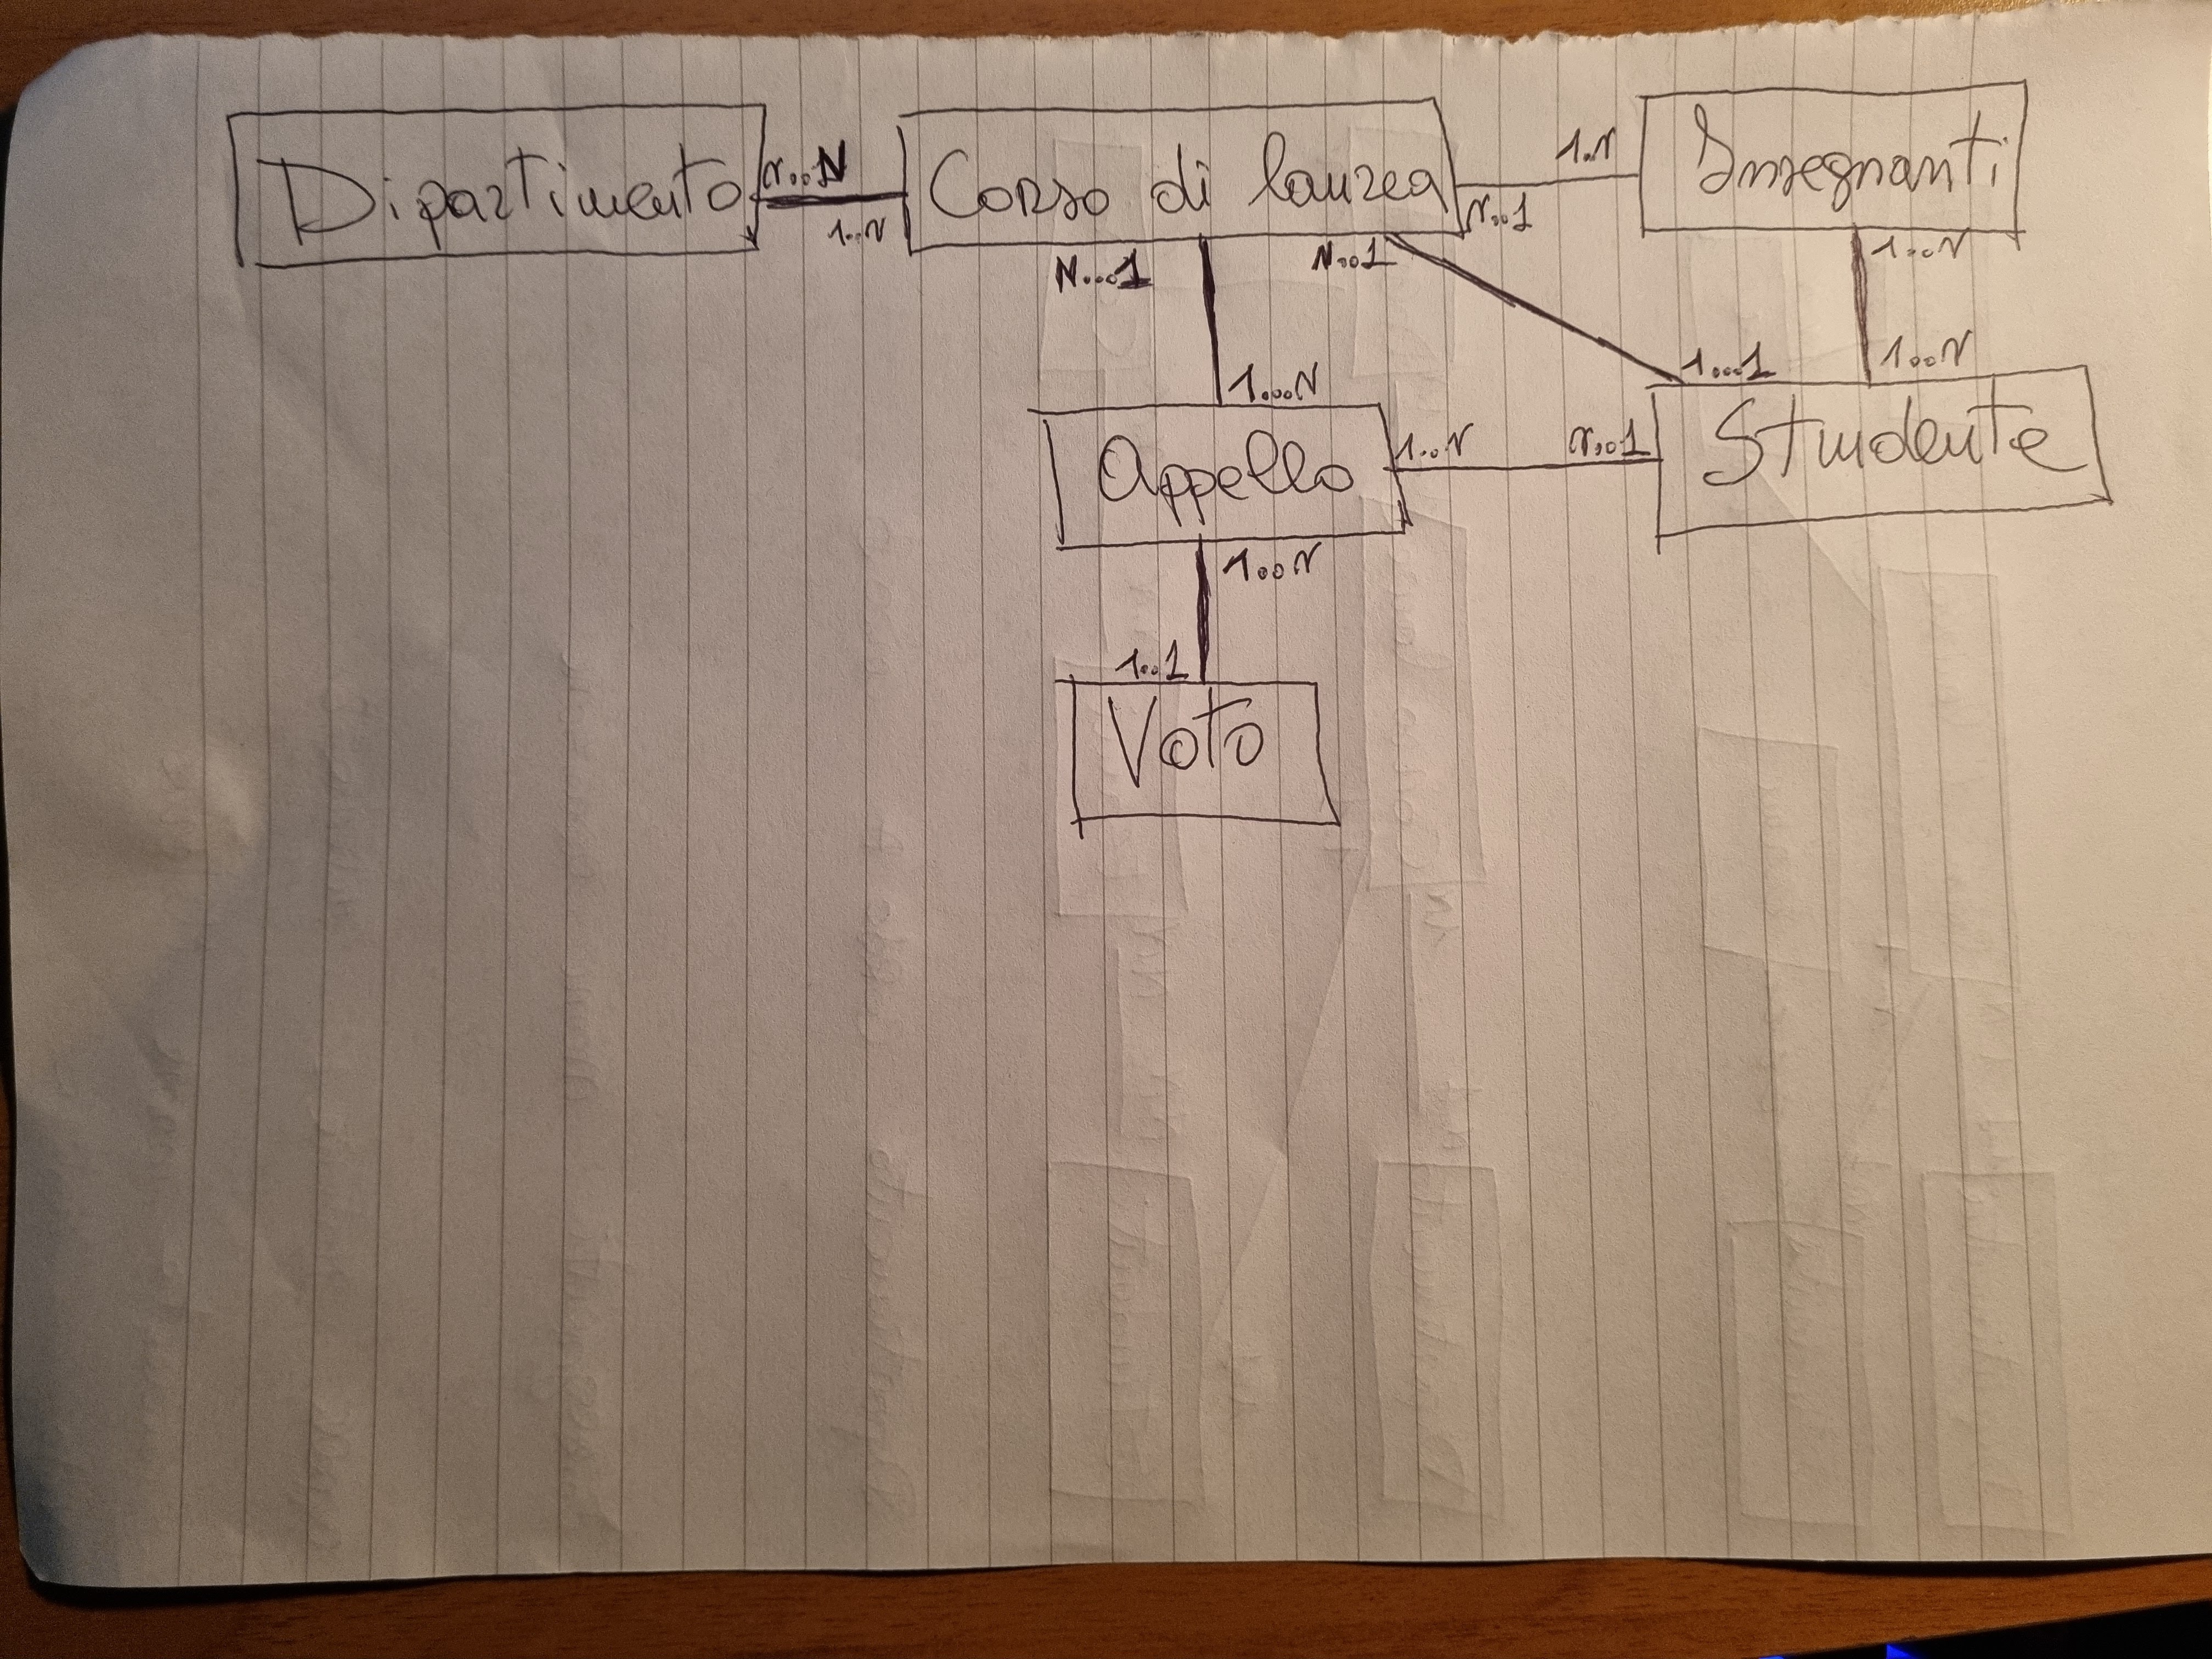 Dipartimento
N..N
1..N
Corso di laurea
1..N
N..1
Insegnanti
N...1
N..1
1..N
1...N
1...1
1..N
Appello
1..N
N..1
Studente
1..N
1..1
Voto